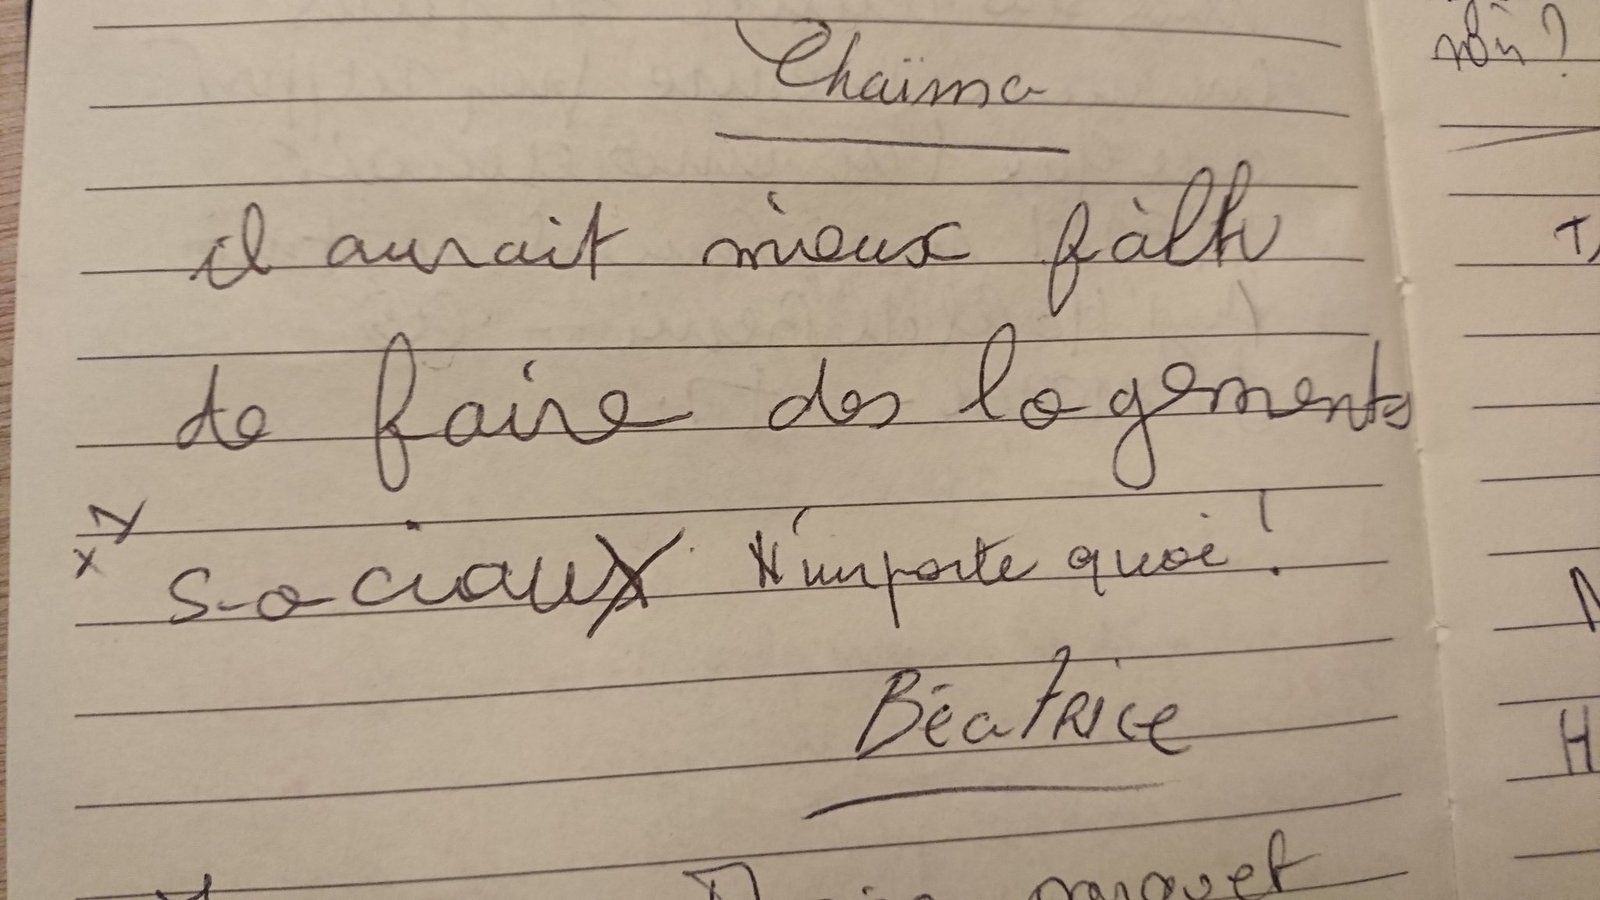 Chaïma
il aurait mieux fàllu
de faire des logements
sociaux N'importe quoi !
Béatrice
noir ?